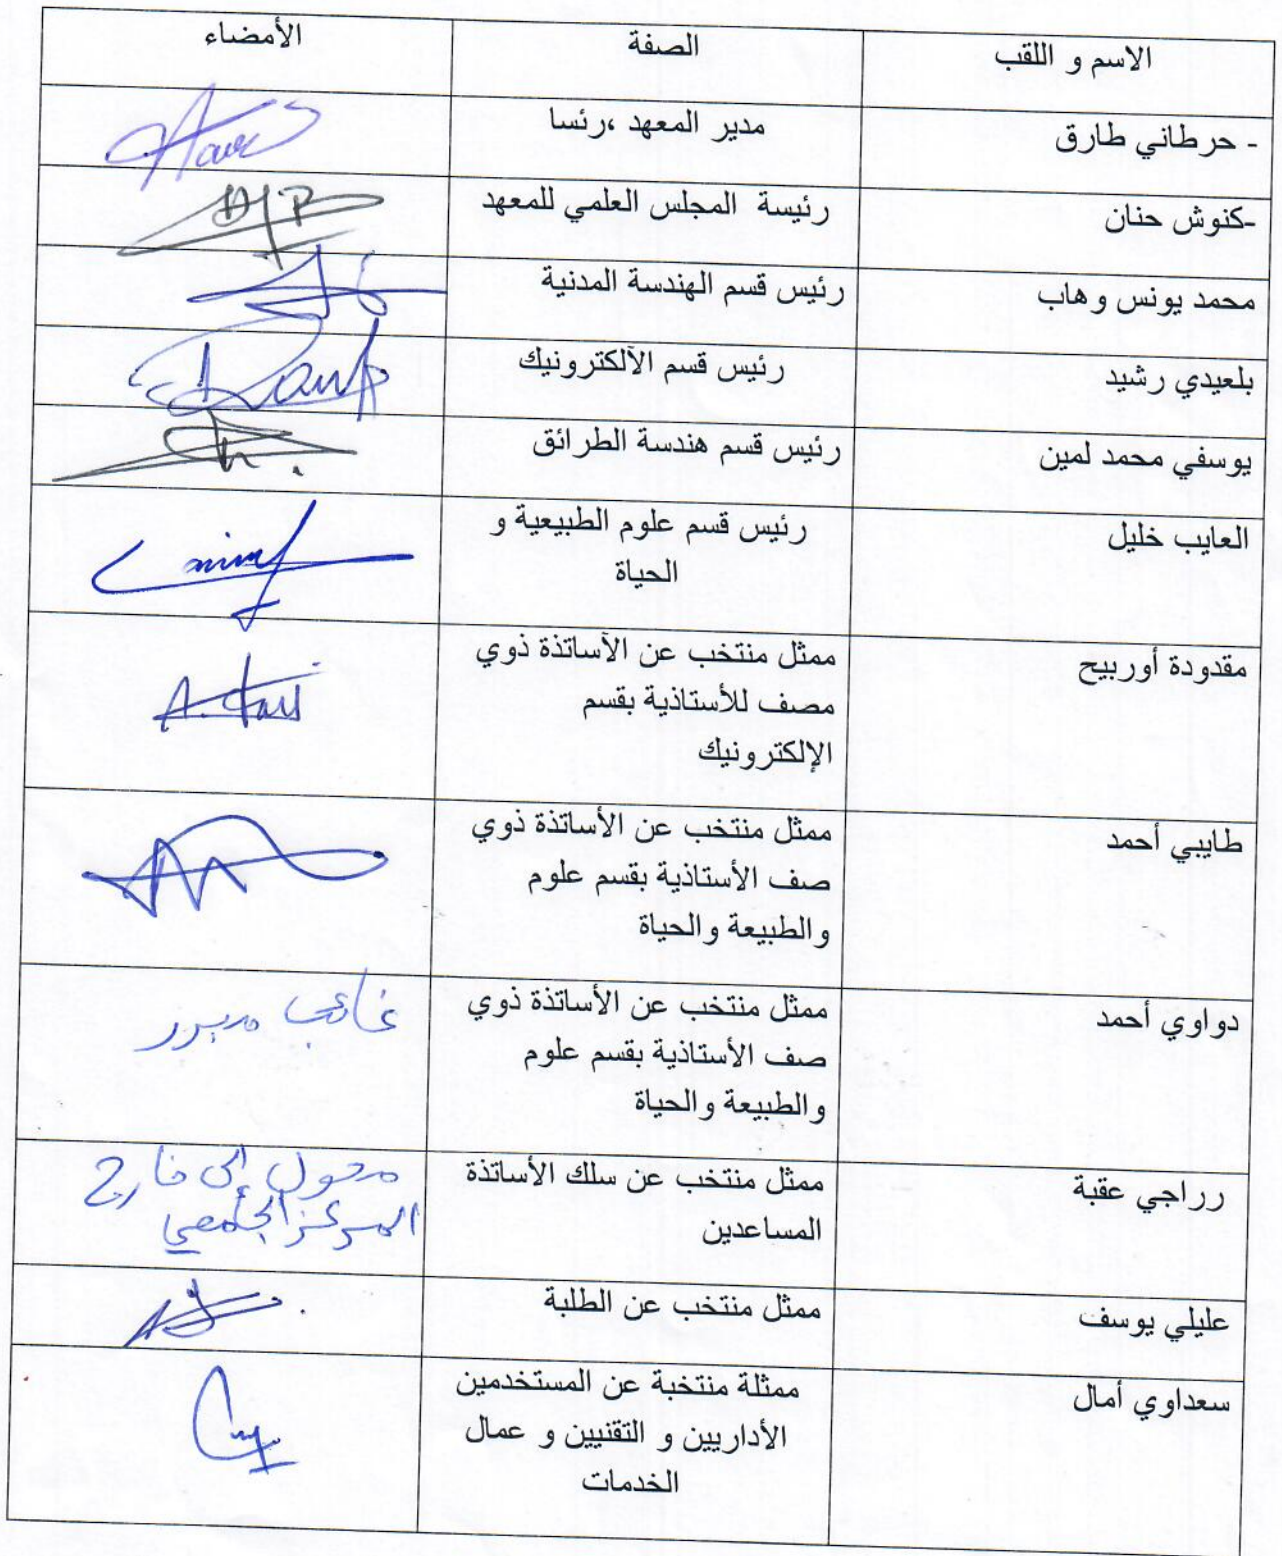 الاسم و اللقب الصفة الأمضاء
- حرطاني طارق مدير المعهد ،رئسا
-كنوش حنان رئيسة المجلس العلمي للمعهد
محمد يونس وهاب رئيس قسم الهندسة المدنية
بلعيدي رشيد رئيس قسم الآلكترونيك
يوسفي محمد لمين رئيس قسم هندسة الطرائق
العايب خليل رئيس قسم علوم الطبيعية و
الحياة
مقدودة أوربيح ممثل منتخب عن الآساتذة ذوي
مصف للأستاذية بقسم
الإلكترونيك
طايبي أحمد ممثل منتخب عن الأساتذة ذوي
صف الأستاذية بقسم علوم
والطبيعة والحياة
دواوي أحمد ممثل منتخب عن الأساتذة ذوي غائب مبرر
صف الأستاذية بقسم علوم
والطبيعة والحياة
رراجي عقبة ممثل منتخب عن سلك الأساتذة محول إلى خارج
المساعدين المركز الجامعي
عليلي يوسف ممثل منتخب عن الطلبة
سعداوي أمال ممثلة منتخبة عن المستخدمين
الأداريين و التقنيين و عمال
الخدمات